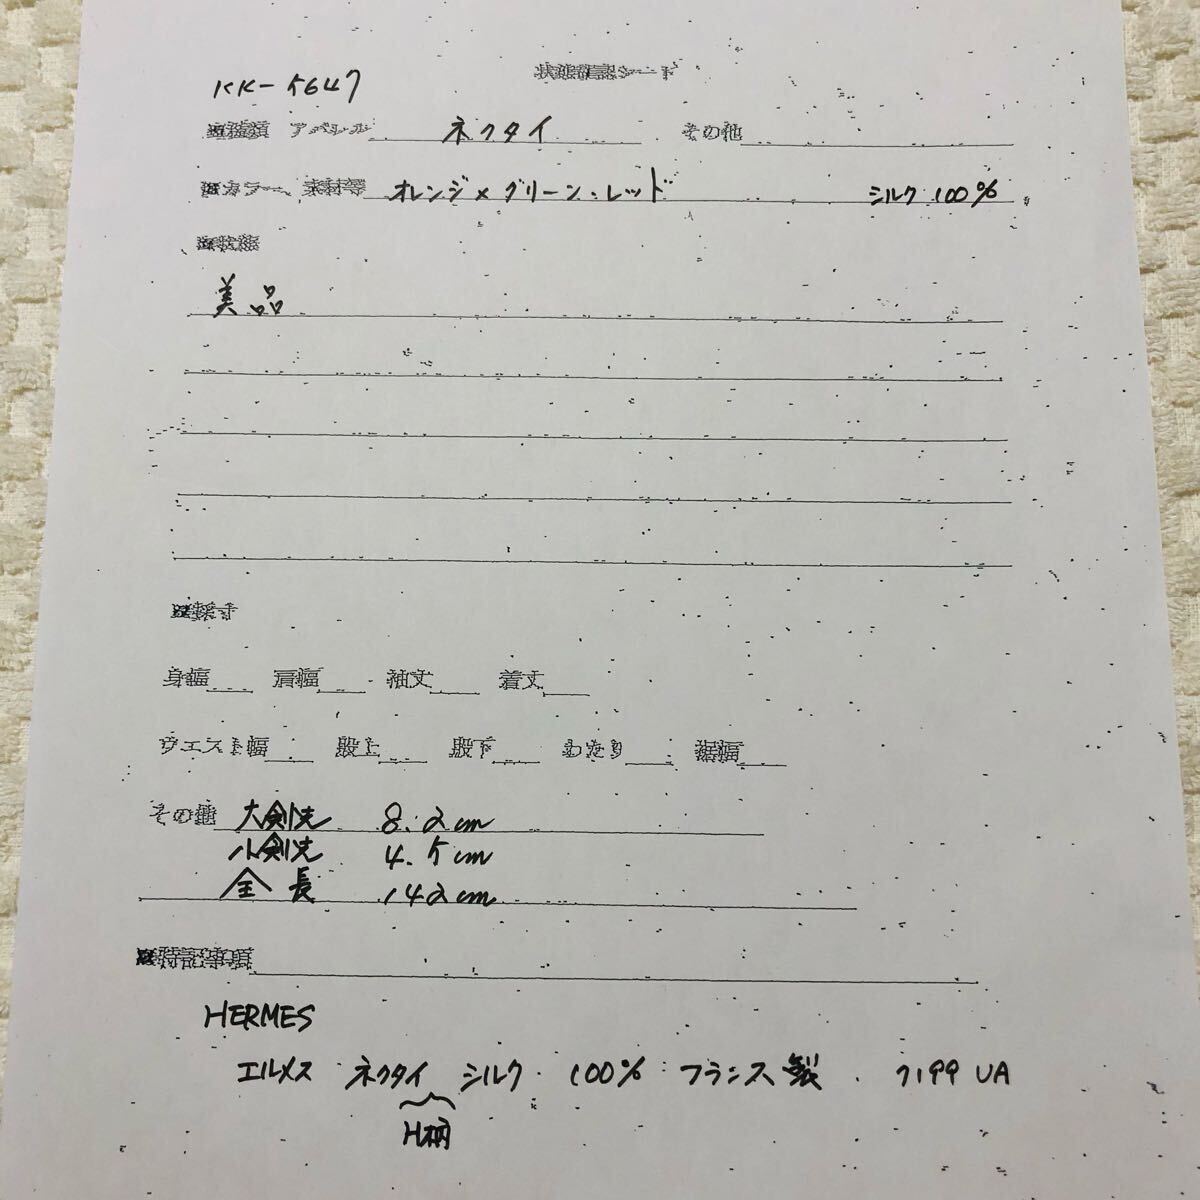 KK-5647
状態確認シート
■種類 アパレル ネクタイ その他
■カラー、素材等 オレンジ×グリーン・レッド シルク 100%
■状態
美品
■採寸
身幅 肩幅 袖丈 着丈
ウエスト幅 股上 股下 わたり 裾幅
その他 大剣先 8.2cm
小剣先 4.5cm
全長 142cm
■特記事項
HERMES
エルメス ネクタイ シルク 100% フランス製 7199 UA
H柄